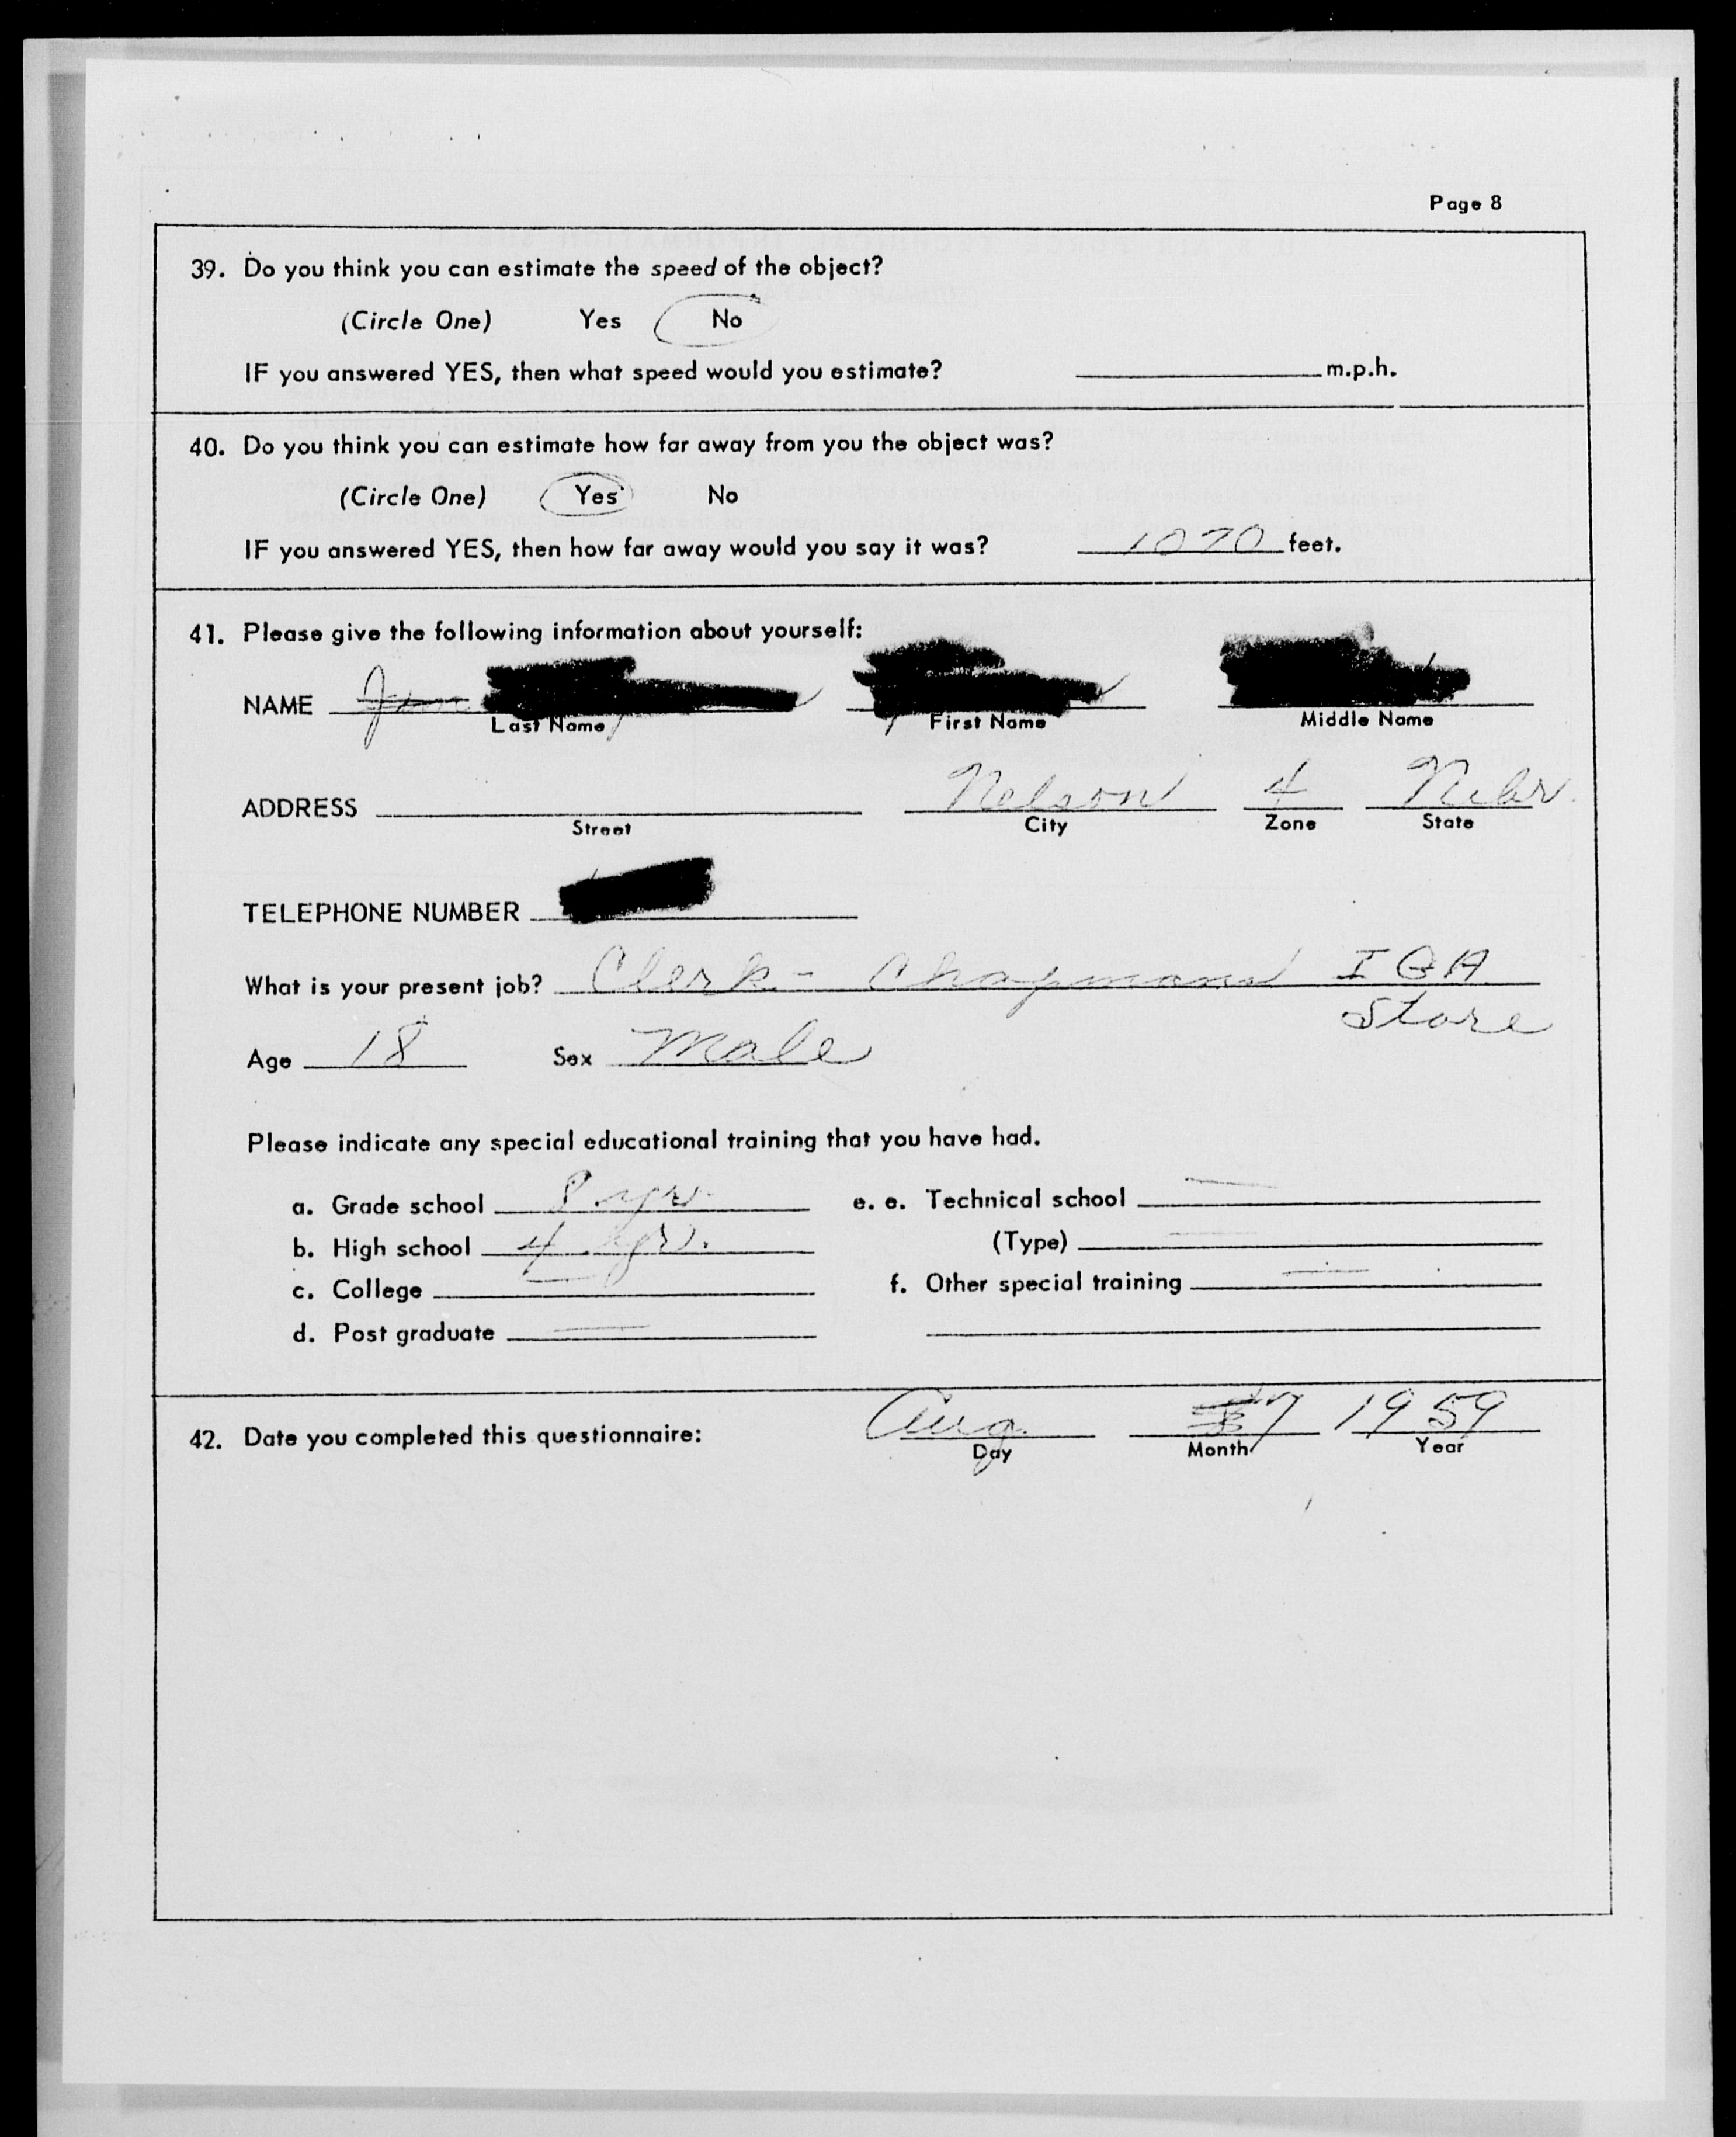 Page 8
39. Do you think you can estimate the speed of the object?
(Circle One) Yes No
IF you answered YES, then what speed would you estimate? m.p.h.
40. Do you think you can estimate how far away from you the object was?
(Circle One) Yes No
IF you answered YES, then how far away would you say it was? 1070 feet.
41. Please give the following information about yourself:
NAME
Last Name First Name Middle Name
Nelson 4 Nebr.
ADDRESS
Street City Zone State
TELEPHONE NUMBER
What is your present job? Clerk - Chapmans IGA
Store
Age 18 Sex Male
Please indicate any special educational training that you have had.
a. Grade school 8 yrs. e. e. Technical school
b. High school 4 yrs. (Type)
c. College f. Other special training
d. Post graduate
42. Date you completed this questionnaire: Aug. 7 1959
Day Month Year